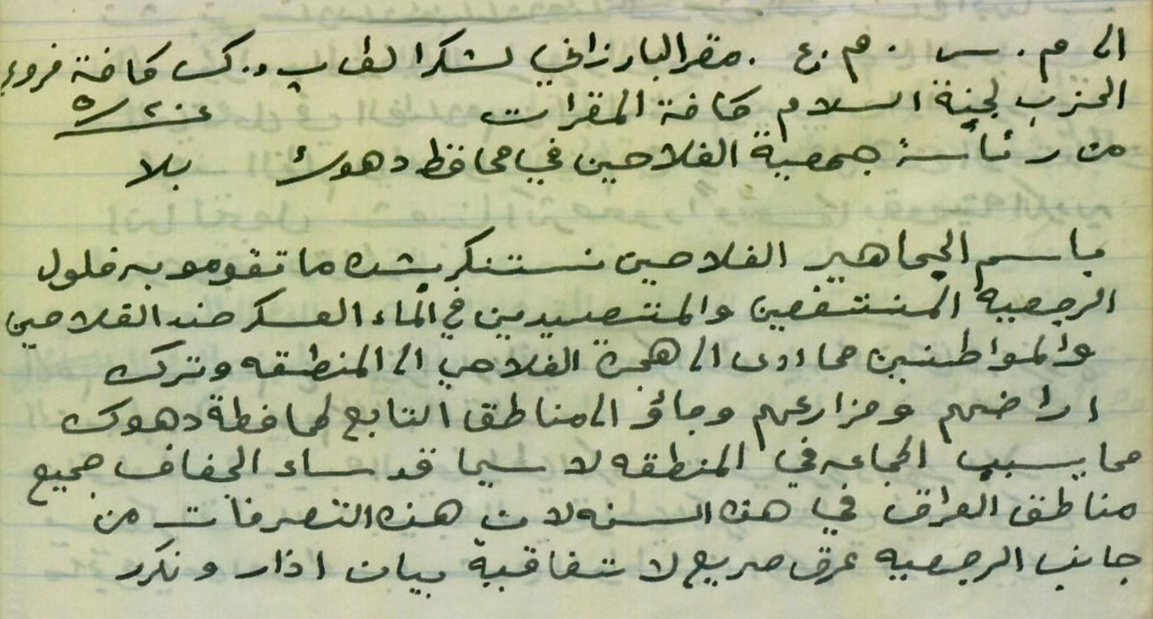 الى م. س. م.ع. مقر البارزاني لشكرا لقاب و. ك س كافة فروع
الحزب لجنة السلام كافة المقرات ٥/٢٠٤
من رئاسة جمعية الفلاحين في محافظ دهوك بلا
باسم الجماهير الفلاحين نستنكر بشده ما تقومو به فلول
الرجعية المنتفعين والمتصيدين في الماء العسكر ضد الفلاحين
والمواطنين مما ادى الى هجرة الفلاحين الى المنطقه وترك
اراضهم ومزارعهم وجائو الى مناطق التابع لمحافظة دهوك
مما يسبب المجاعه في المنطقه لا سيما قد ساد الجفاف جميع
مناطق العراق في هذه السنه لان هذه التصرفات من
جانب الرجعيه خرق صريع لا تفاقية بيان اذار ونكرر